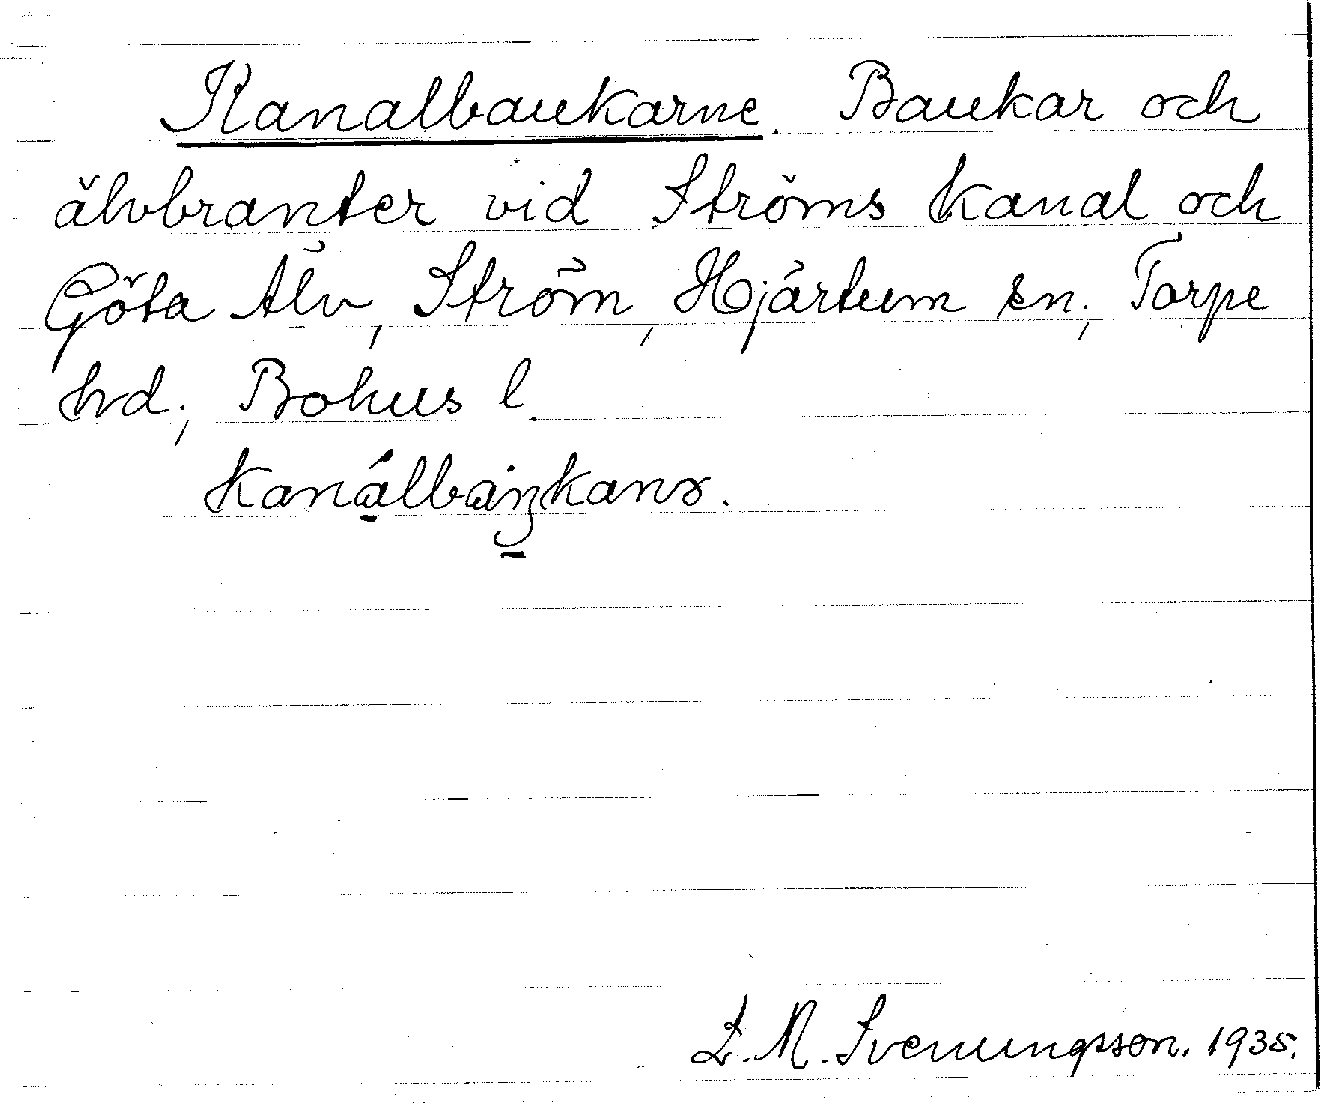 Kanalbankarne. Bankar och
älvbranter vid Ströms kanal och
Göta Älv, Ström, Hjärtum sn; Torpe
hrd; Bohus l.
kanálbaŋkanɤ.
L. M. Svenungsson. 1935.